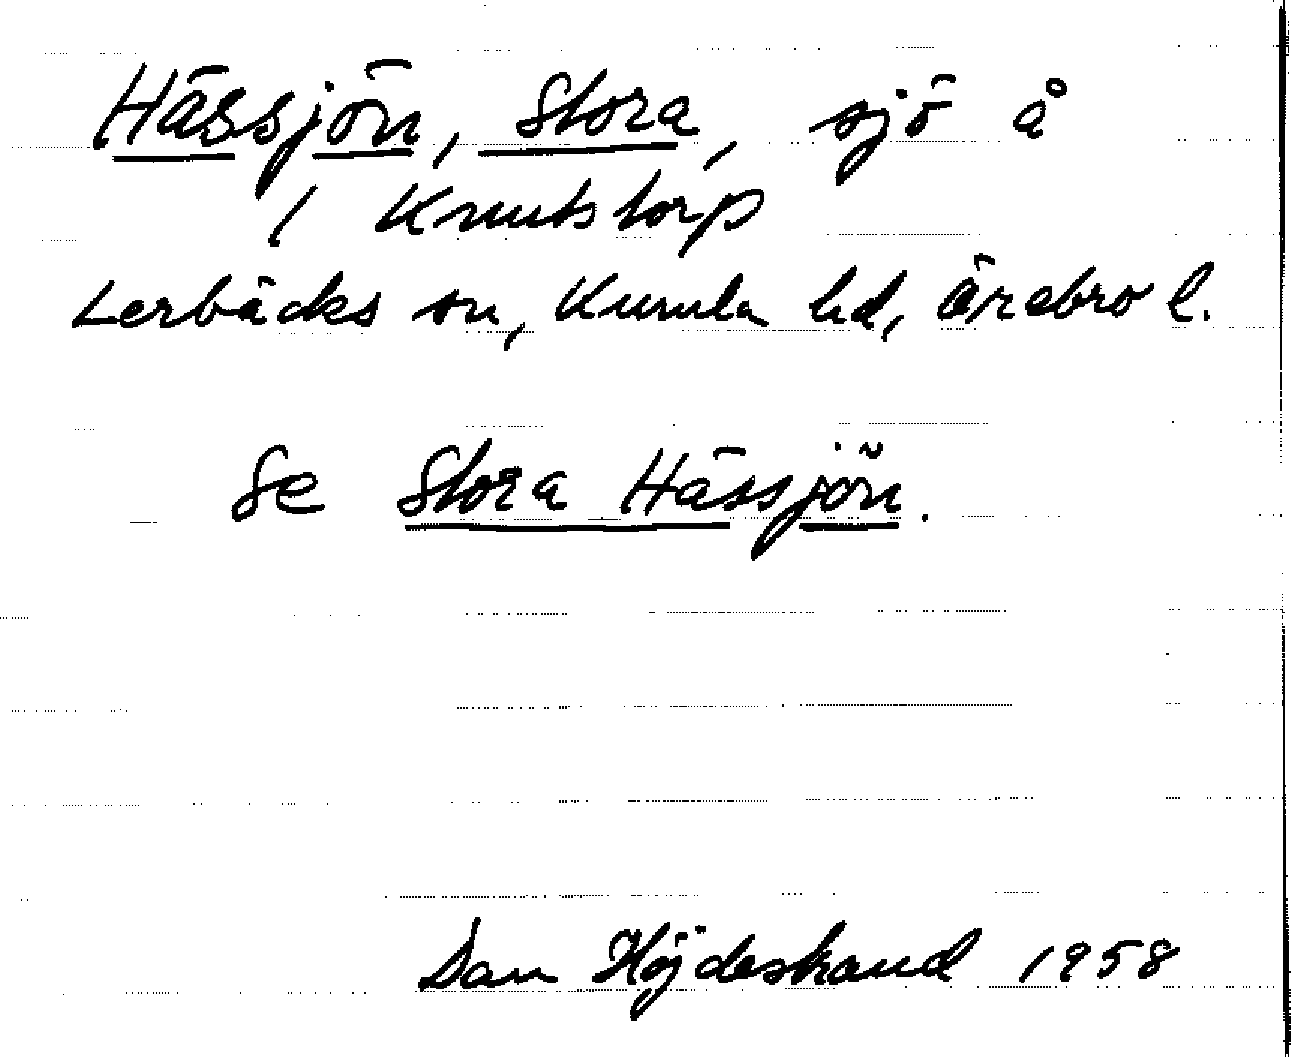 Hässjön, Stora, sjö å
/ Knutstorp
Lerbäcks sn, Kumla hd, Örebro l.
Se Stora Hässjön.
Dan Höjdestrand 1958